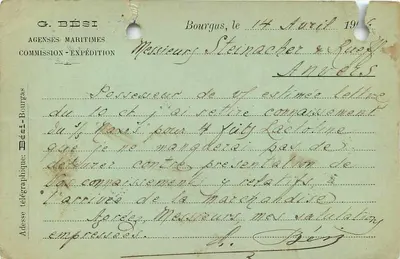 G. BÉSI
AGENSES MARITIMES
COMMISSION-EXPÉDITION
Adresse télégraphique: Bési-Bourgas
Bourgas, le 14 Avril 19
Messieurs Steinacher &
Anvers
Possesseur de v/ estimée lettre
du 10 ct, j'ai retiré connaissement
du pour 4 fûts
que je ne manquerai pas de
délivrer contre présentation de
connaissement y relatifs, à
l'arrivée de la marchandise
Agréez, Messieurs, mes salutations
empressées.
G. Bési